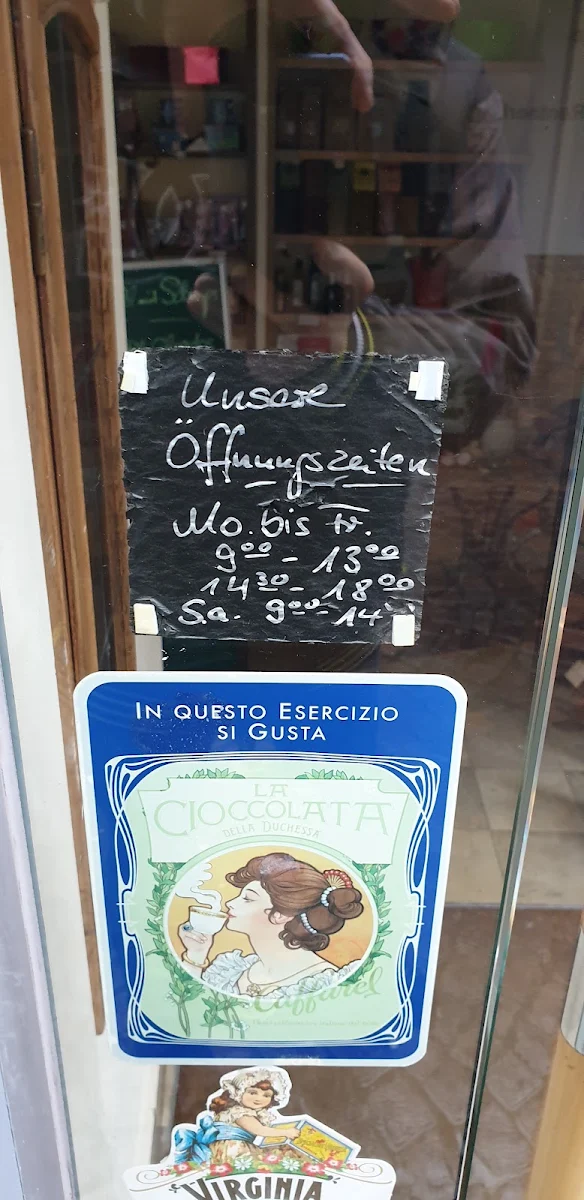 Unsere
Öffnungszeiten
Mo. bis Fr.
9⁰⁰ - 13⁰⁰
14³⁰ - 18⁰⁰
Sa. 9⁰⁰ - 14
IN QUESTO ESERCIZIO
SI GUSTA
LA
CIOCCOLATA
DELLA DUCHESSA
Caffarel
VIRGINIA